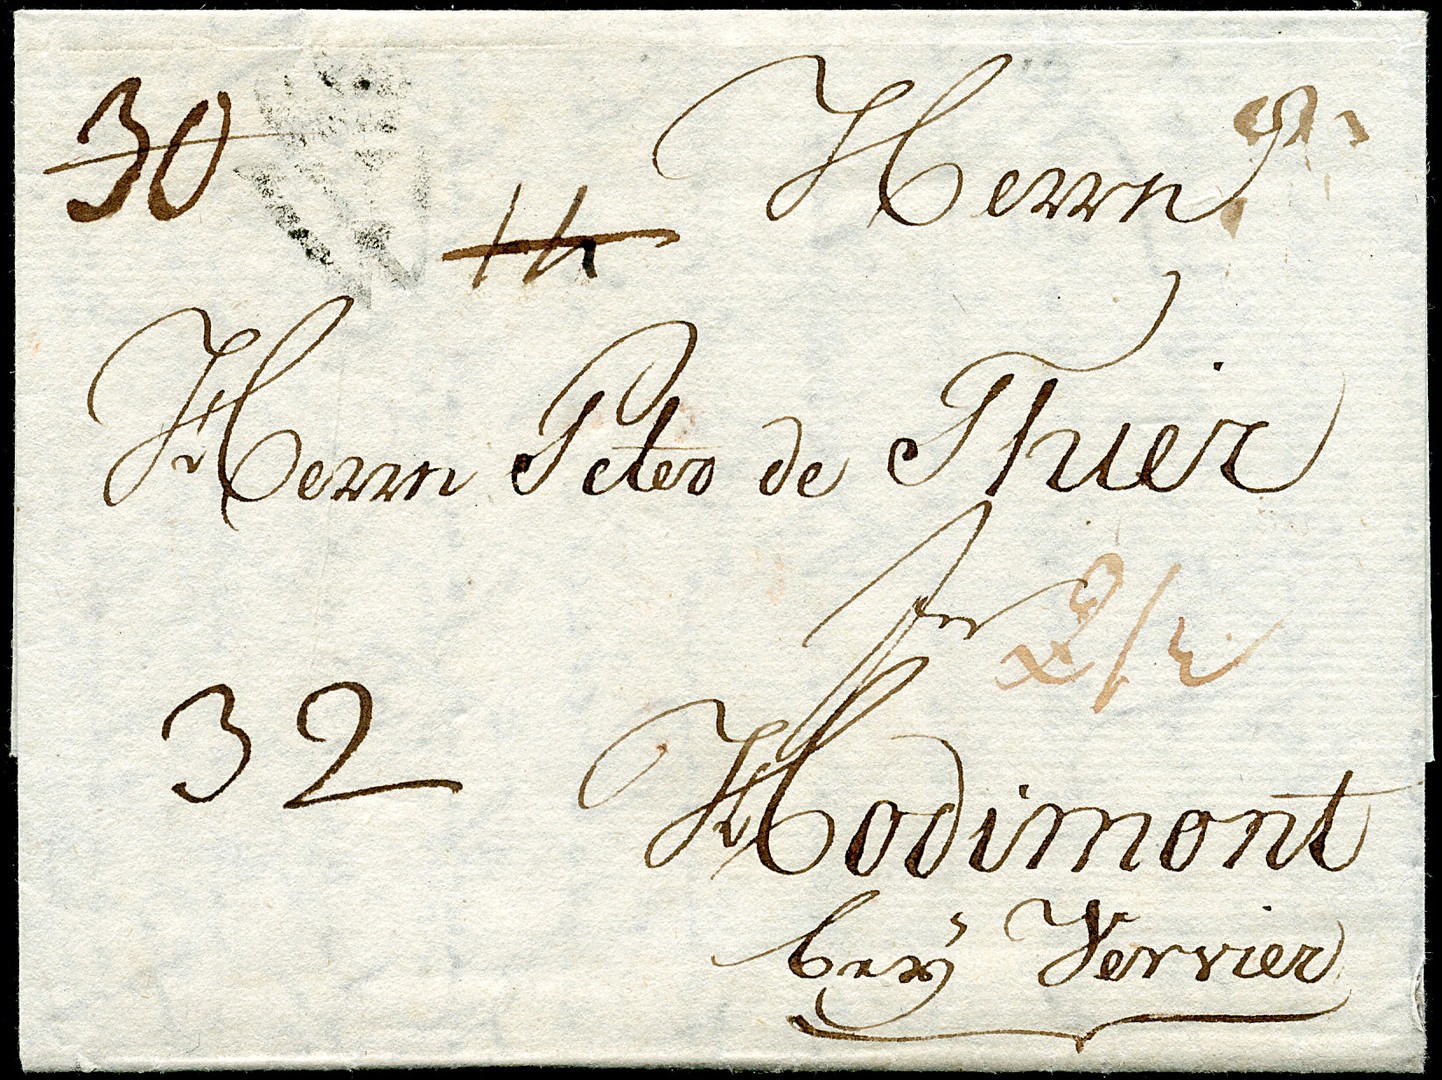 30
Herrn
14
Herrn Peter de Thier
in
2/2
32
Hodimont
beÿ Vervier